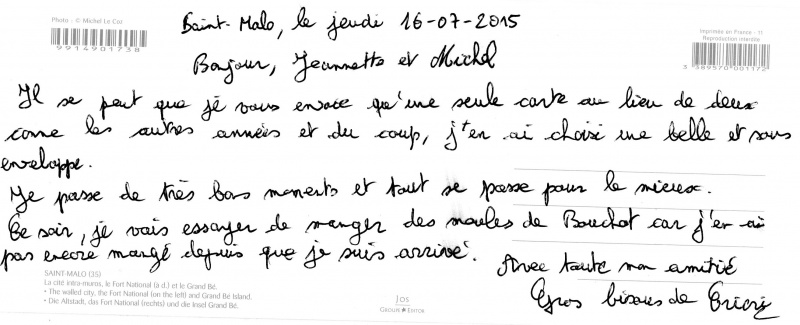 Photo - © Michel Le Coz
9914901738
Imprimée en France - 11
Reproduction interdite
3 389570 001172
Saint-Malo, le jeudi 16-07-2015
Bonjour, Jeannette et Michel
Il se peut que je vous envoie qu'une seule carte au lieu de deux
come les autres années et du coup, j'en ai choisi une belle et sans
enveloppe.
Je passe de très bons moments et tout se passe pour le mieux.
Ce soir, je vais essayer de manger des moules de Bouchot car j'en ai
pas encore mangé depuis que je suis arrivé.
Avec toute mon amitié
Gros bisous de
SAINT-MALO (35)
La cité intra-muros, le Fort National (à d.) et le Grand Bé.
• The walled city, the Fort National (on the left) and Grand Bé Island.
• Die Altstadt, das Fort National (rechts) und die Insel Grand Bé.
JOS
GROUPE EDITOR